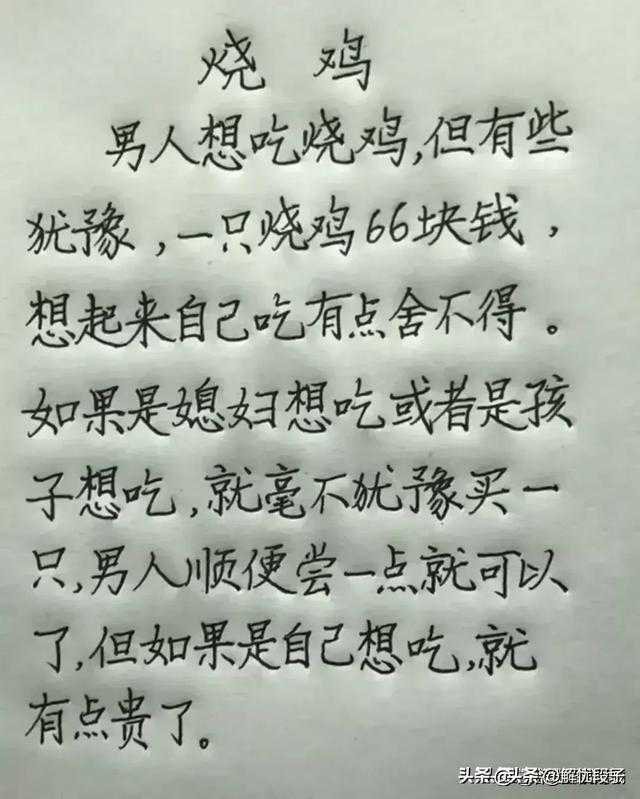 烧鸡
男人想吃烧鸡,但有些
犹豫,一只烧鸡66块钱,
想起来自己吃有点舍不得。
如果是媳妇想吃或者是孩
子想吃,就毫不犹豫买一
只,男人顺便尝一点就可以
了,但如果是自己想吃,就
有点贵了。
头条@解忧段子